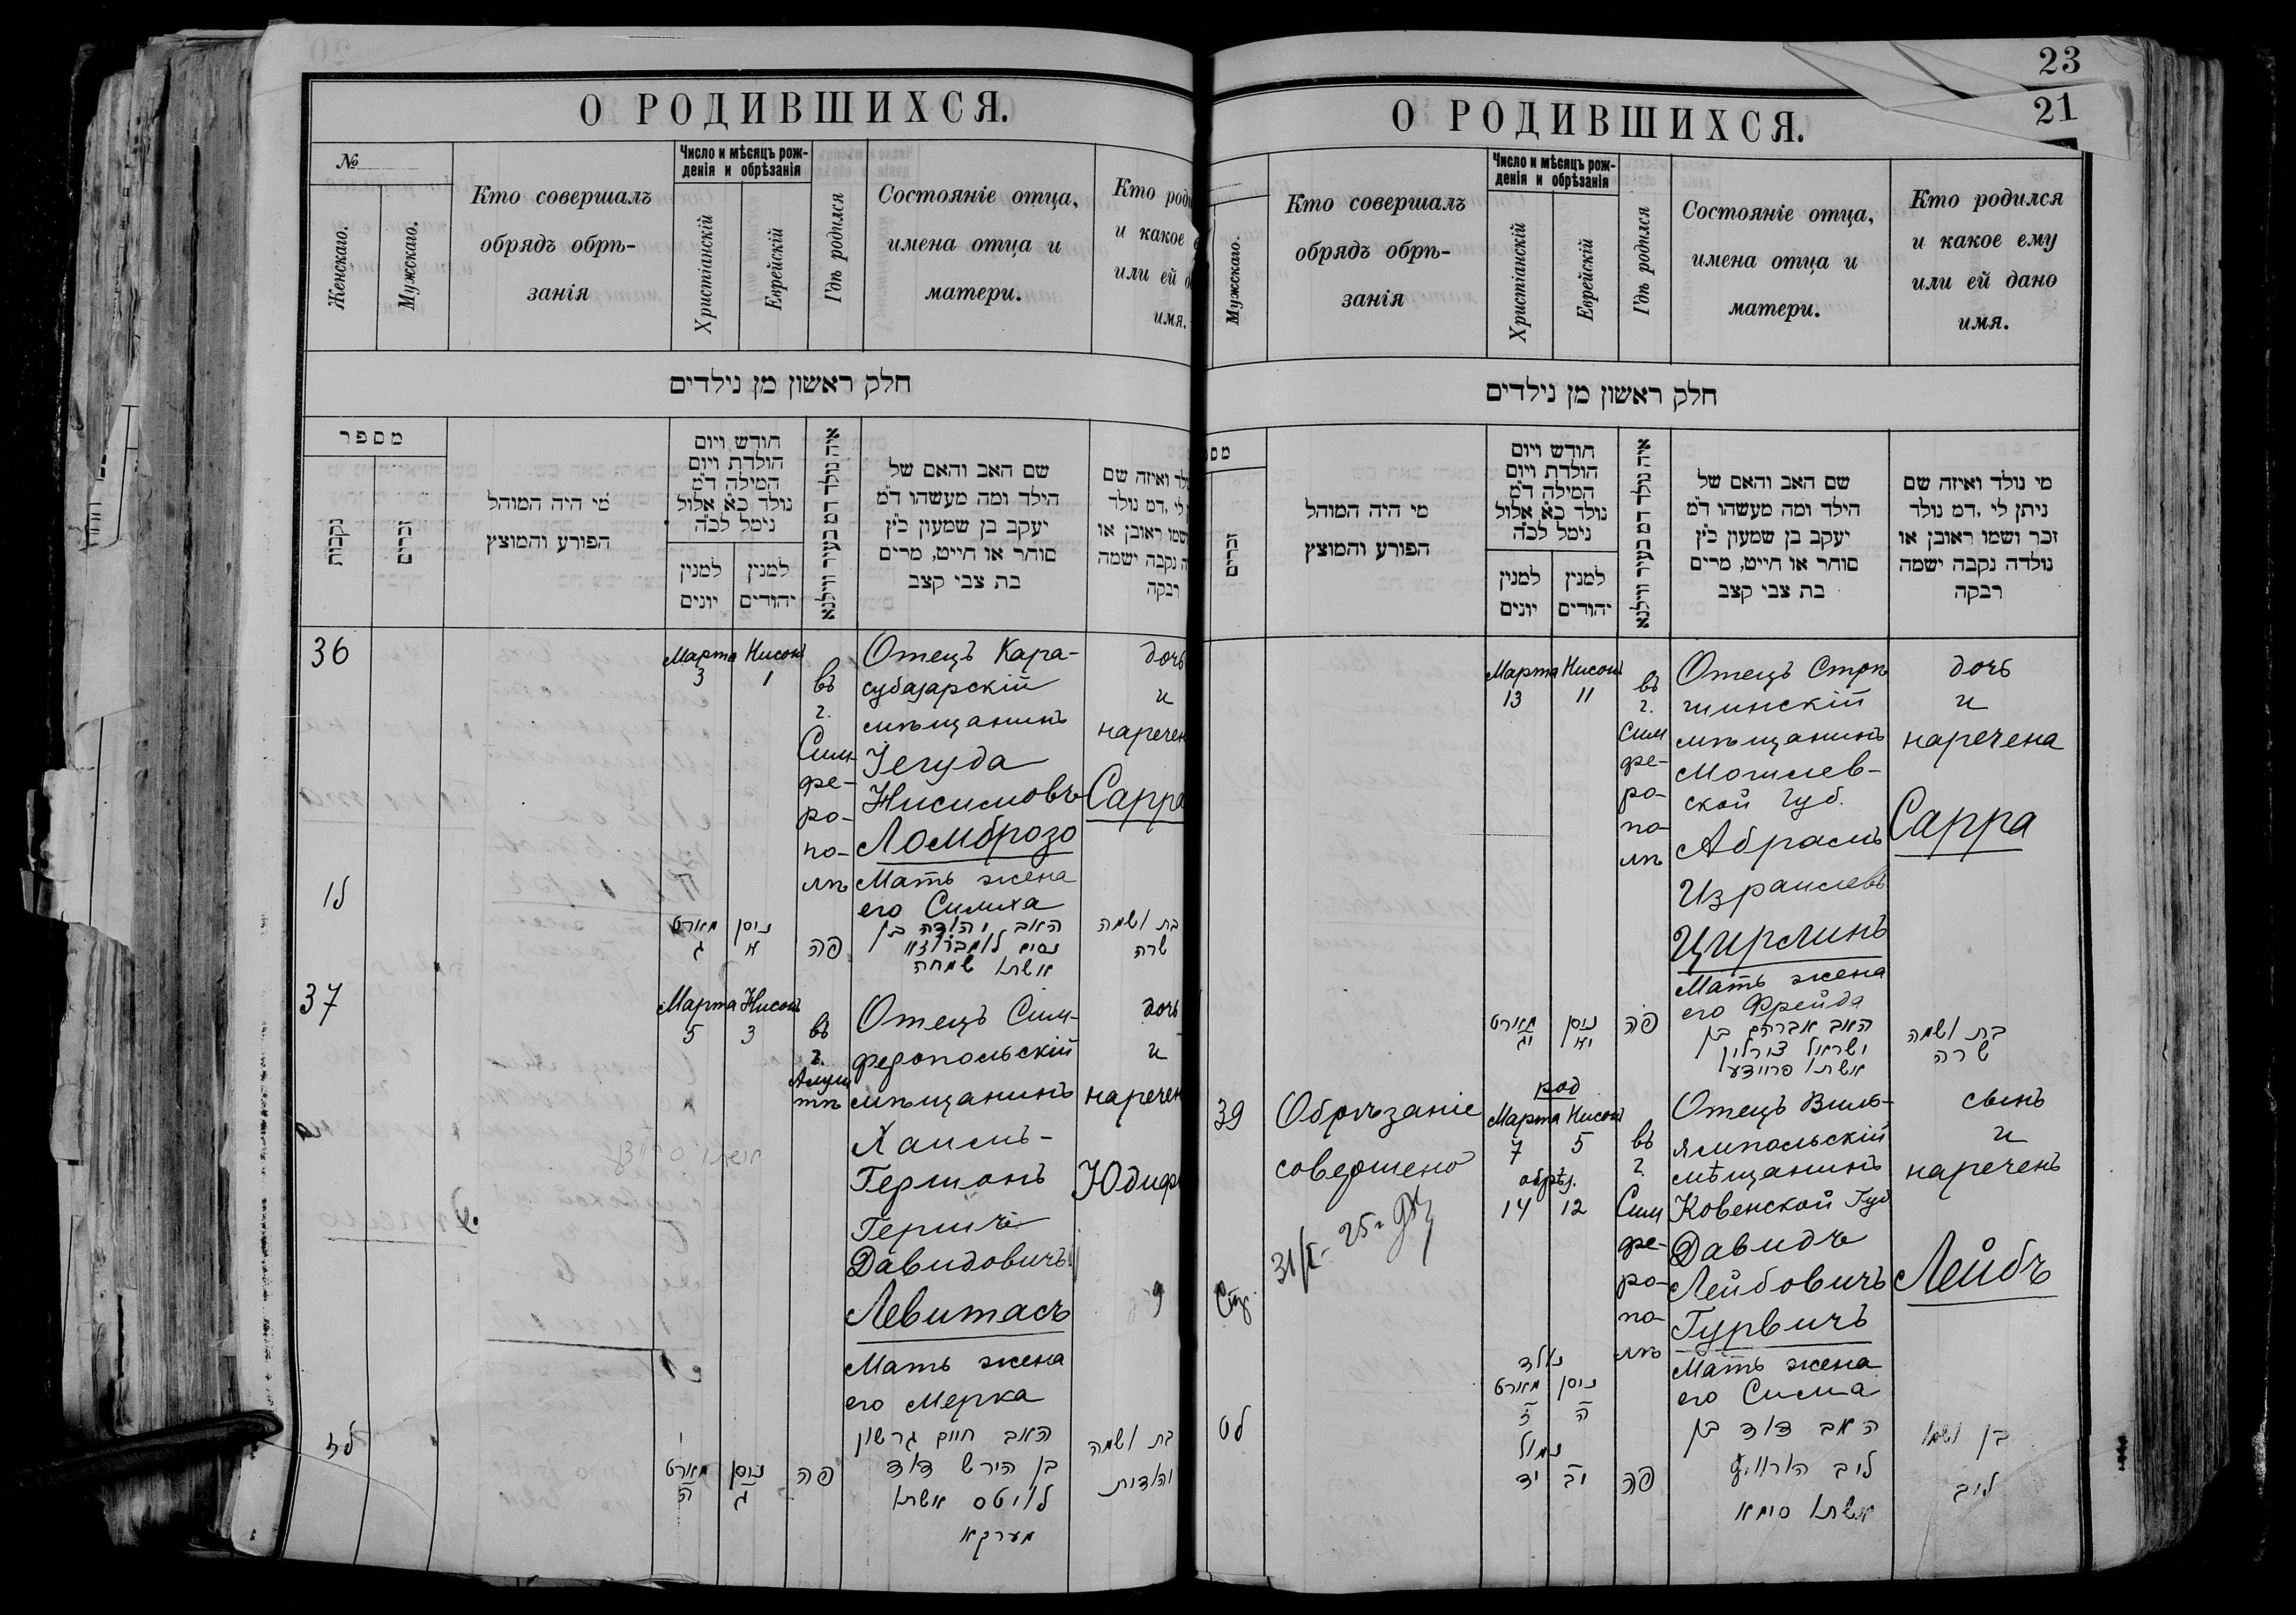 О РОДИВШИХСЯ.
№
Женскаго.
Мужскаго.
Кто совершалъ
обрядъ обрѣ-
занія
Число и мѣсяцъ рож-
денія и обрѣзанія
Христіанскій
Еврейскій
Гдѣ родился
Состояніе отца,
имена отца и
матери.
Кто роди
и какое е
или ей д
имя.
חלק ראשון מן נילדים
מספר
נקבות
זכרים
מי היה המוהל
הפורע והמוצץ
חודש ויום
הולדת ויום
המילה ד״מ
נולד כא אלול
נימל לכ״ה
למנין
יונים
למנין
יהודים
איה נולד דמ בעיר ווילנא
שם האב והאם של
הילד ומה מעשהו ד״מ
יעקב בן שמעון כ״ץ
סוחר או חייט, מרים
בת צבי קצב
לד ואיזה שם
לי ,דמ נולד
שמו ראובן או
ה נקבה ישמה
רבקה
36
Марта
3
Нисонъ
1
въ
г.
Сим
фе-
ро-
по-
лѣ
Отецъ Кара-
субазарскій
мѣщанинъ
Іегуда
Нисимовъ
Ломброзо
Мать жена
его Симиха
дочь
и
наречен
Сарра
לו
מארט
ג
ניסן
א
פה
האב יהודה בן
נסים לומברוזא
אשתו שמחה
בת ושמה
שרה
37
Марта
5
Нисонъ
3
въ
г.
Алуш
тѣ
Отецъ Сим-
феропольскій
мѣщанинъ
Хаимъ-
Гершонъ
Гершъ
Давидовичъ
Левитасъ
Мать жена
его Мерка
дочь
и
наречен
Юдифь
לז
מארט
ה
ניסן
ג
פה
האב חיים גרשון
בן הירש דוד
לויטס אשתו
מערקא
בת ושמה
יהודית
23
21
О РОДИВШИХСЯ.
Мужскаго.
Кто совершалъ
обрядъ обрѣ-
занія
Число и мѣсяцъ рож-
денія и обрѣзанія
Христіанскій
Еврейскій
Гдѣ родился
Состояніе отца,
имена отца и
матери.
Кто родился
и какое ему
или ей дано
имя.
חלק ראשון מן נילדים
מס
זכרים
מי היה המוהל
הפורע והמוצץ
חודש ויום
הולדת ויום
המילה ד״מ
נולד כא אלול
נימל לכ״ה
למנין
יונים
למנין
יהודים
איה נולד דמ בעיר ווילנא
שם האב והאם של
הילד ומה מעשהו ד״מ
יעקב בן שמעון כ״ץ
סוחר או חייט, מרים
בת צבי קצב
מי נולד ואיזה שם
ניתן לי ,דמ נולד
זכר ושמו ראובן או
נולדה נקבה ישמה
רבקה
Марта
13
Нисонъ
11
въ
г.
Сим
фе-
ро-
по-
лѣ
Отецъ
шинскій
мѣщанинъ
Могилев-
ской губ.
Абрамъ
Израилевъ
Цирлинъ
Мать жена
его Фрейда
дочь
и
наречена
Сарра
מארט
יג
ניסן
יא
פה
האב אברהם בן
ישראל צירלין
אשתו פריידע
בת ושמה
שרה
39
Обрѣзаніе
совершено
31/I-25г
Стр.
род
Марта
7
Нисонъ
5
обрѣз.
14
12
въ
г.
Сим
фе-
ро-
по-
лѣ
Отецъ Виль-
ямпольскій
мѣщанинъ
Ковенской Губ
Давидъ
Лейбовичъ
Гурвичъ
Мать жена
его Сима
сынъ
и
нареченъ
Лейбъ
לט
נולד
מארט
ז
ניסן
ה
נמול
יד
יב
פה
האב דוד בן
ליב הורוויץ
אשתו סימא
בן ושמו
ליב